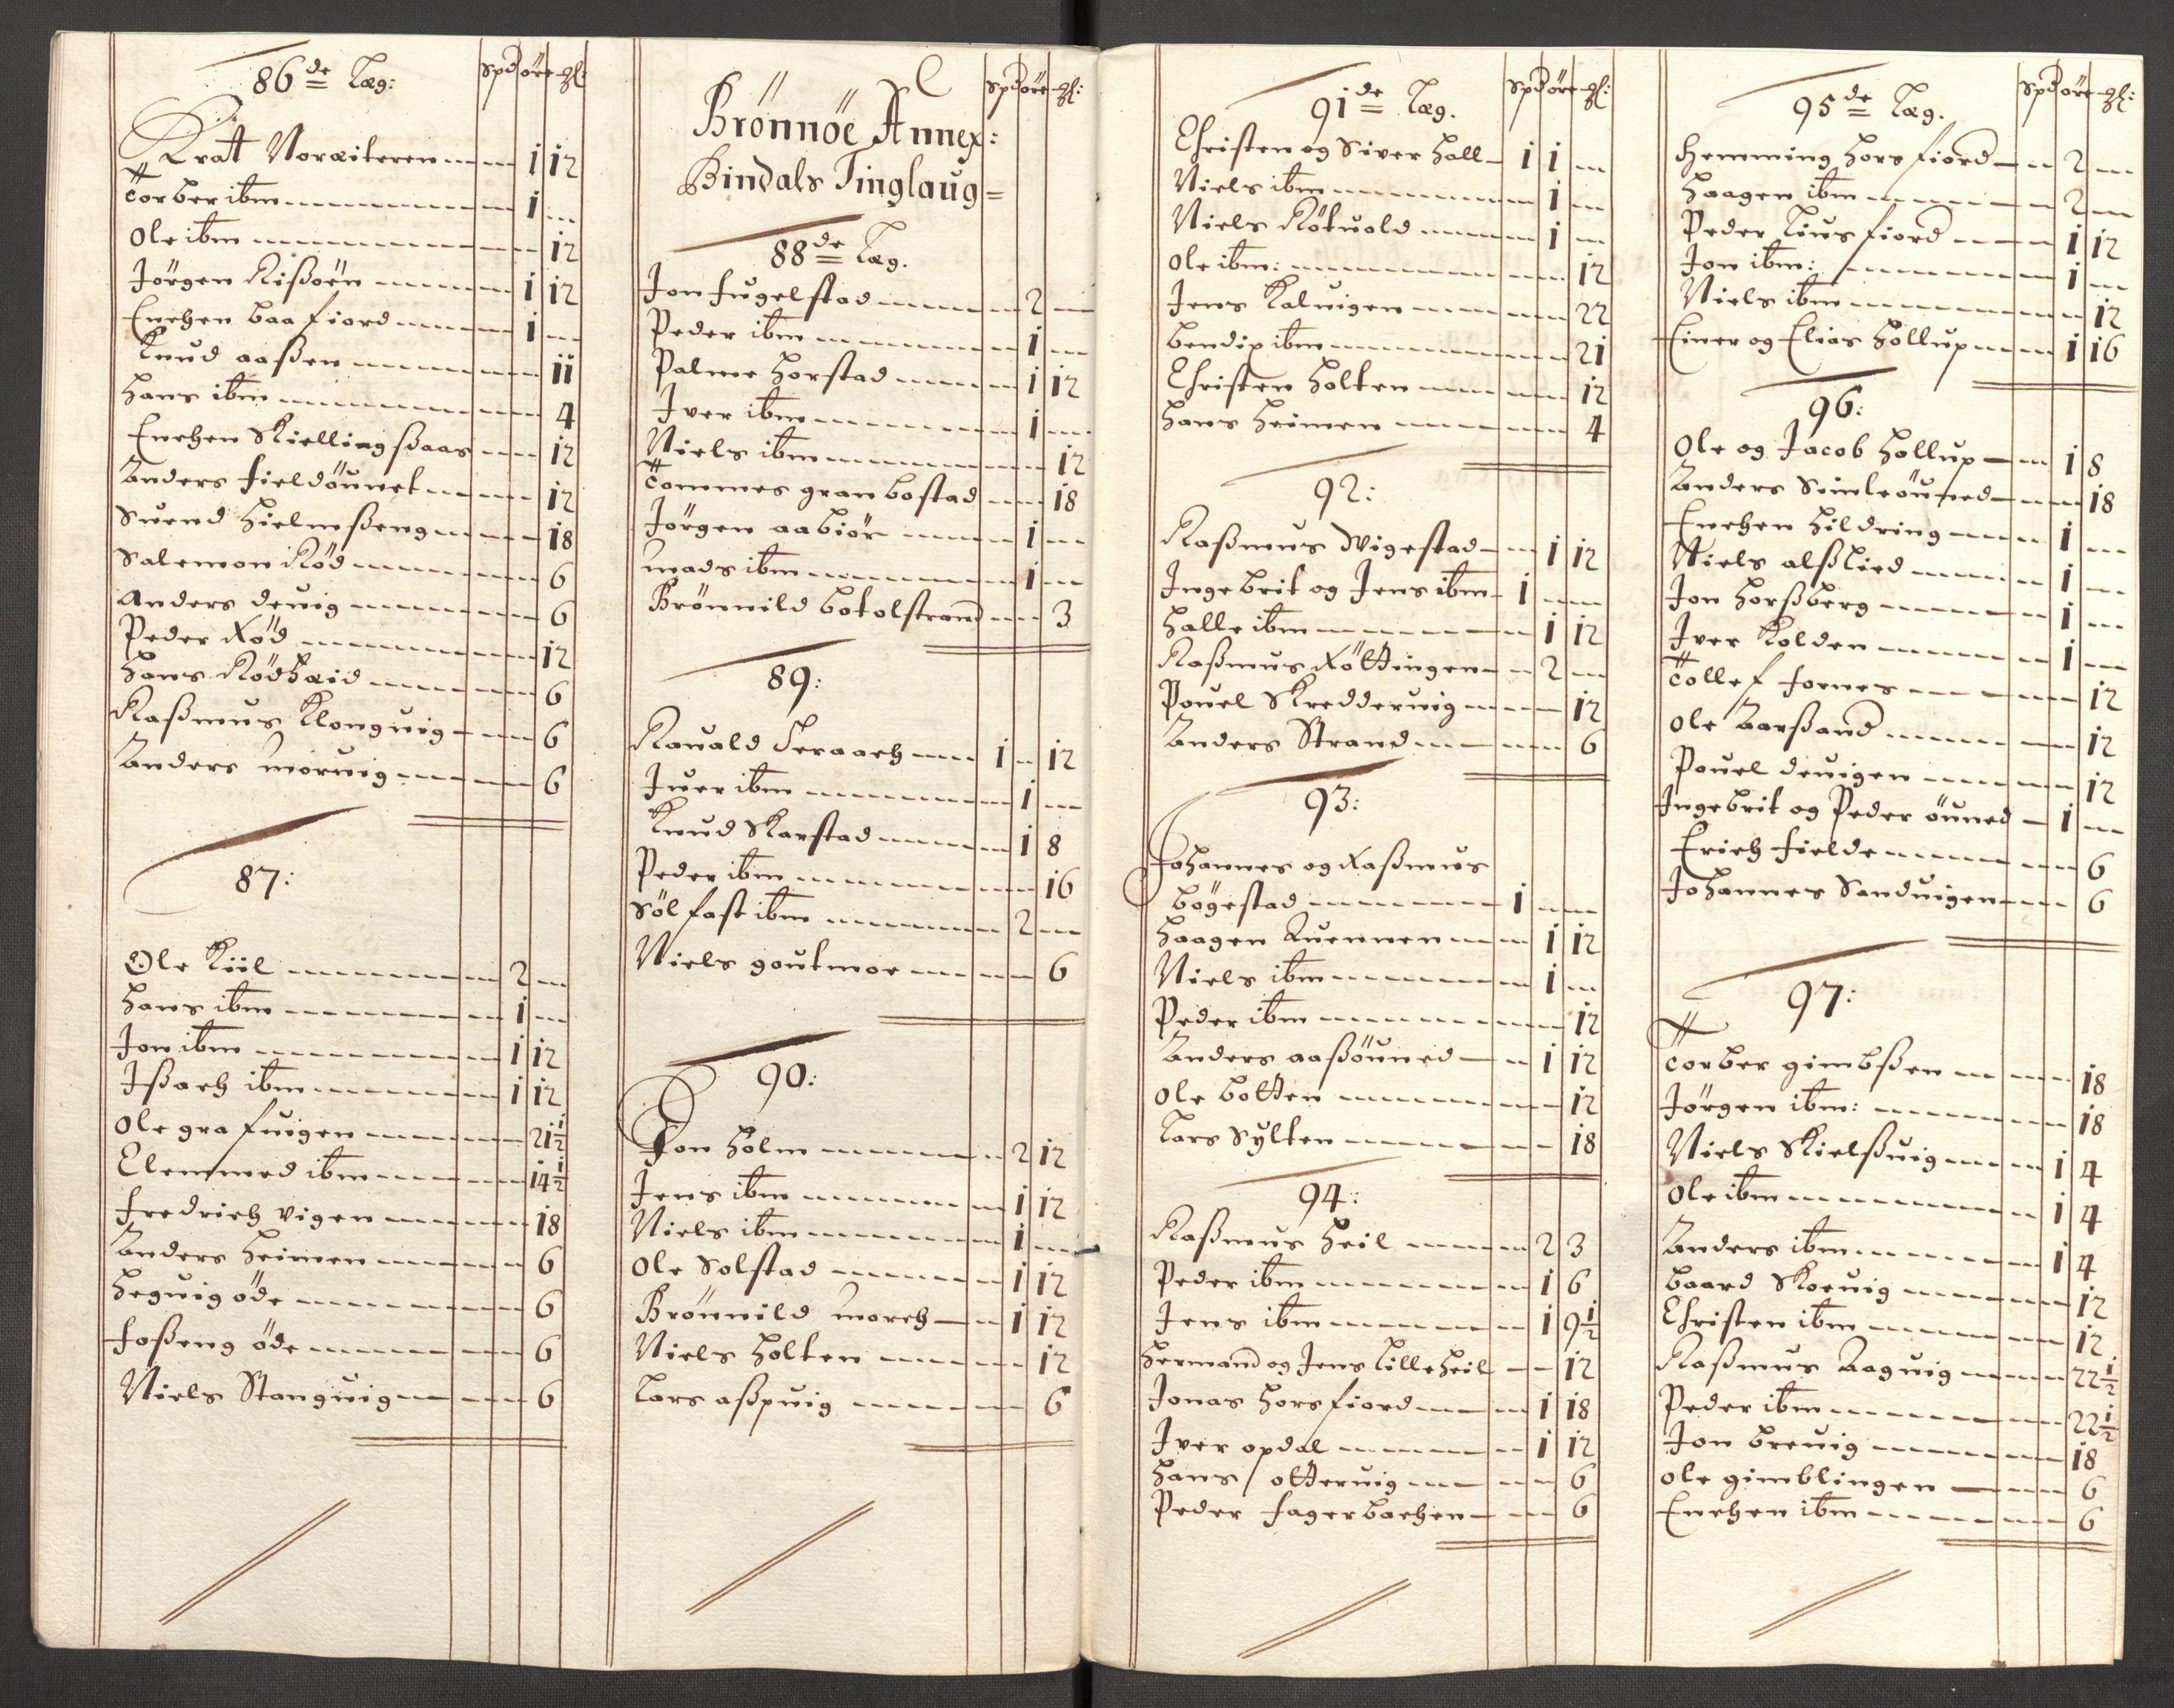 86de Læg: Spd öre ℳ:
Krat Voraiteren 1 12
Torber ibm 1
Ole ibm 12
Jörgen Kißöen 1 12
Enchen baafiord 1
Knud aaßen 11
Hans ibm 4
Enchen Skiellingßaas 12
Anders Fieldöunet 12
Suend Hielmßeng 18
Salemon Röd 6
Anders devig 6
Peder Röd 12
Hans Rödhæid 6
Raßmus Klongvig 6
Anders morvig 6
87:
Ole Kiil 2
Hans ibm 1
Jon ibm 1 12
Jßach ibm 1 12
Ole grafuigen 21½
Clemmed ibm 14½
Fredrich vigen 18
Anders Heimen 6
Hegvig öde 6
Foßeng öde 6
Niels Stangvig 6
Brönnöe Annex:
Bindals Tinglaug=
Spd öre
88de Læg.
Jon Fugelstad 2
Peder ibm 1
Palme Horstad 1 12
Iver ibm 1
Niels ibm 12
Tommes granbostad 18
Jörgen aabiör 1
mads ibm 1
Brönnild botolstrand 3
89:
Ravald Teraach 1 12
Juer ibm 1
Knud Skarstad 1 8
Peder ibm 16
Sölfast ibm 2
Niels goutmoe 6
90:
Jon Holm 2 12
Jens ibm 1 12
Niels ibm 1
Ole Solstad 1 12
Brönnild morch 1 12
Niels Holten 12
Lars aßpvig 6
91de Læg. Spd öre
Christen og Siver Hall 1 1
Niels ibm 1
Niels Rötvold 1
Ole ibm: 12
Jens Kalvigen 22
bendix ibm 21
Christen Holten 12
Hans Heimen 4
92:
Raßmus Wigestad 1 12
Ingebrit og Jens ibm 1
Halle ibm 1 12
Raßmus Röttingen 2
Pouel Skreddervig 12
Anders Strand 6
93:
Johannes og Raßmus
bögestad 1
Haagen Quennen 1 12
Niels ibm 1
Peder ibm 12
Anders aaßöuned 1 12
Ole botten 12
Lars Sylten 18
94:
Raßmus Heil 2 3
Peder ibm 1 6
Jens ibm 1 9½
Hermand og Jens Lilleheil 12
Jonas Horsfiord 1 18
Iver opdal 1 12
Hans ottervig 6
Peder fagerbachen 6
95de Læg. Spd öre
Hemming Horsfiord 2
Haagen ibm 2
Peder Liusfiord 1 12
Jon ibm: 1
Niels ibm 12
Einer og Elias Hollup 1 16
96:
Ole og Jacob Hollup 1 8
Anders Simleöuned 18
Enchen Hildring 1
Niels alßlied 1
Jon Horßberg 1
Iver Kolden 1
Tollef Foenes 12
Ole Aarßand 12
Pouel devigen 12
Ingebrit og Peder öuned 1
Erich Fielde 6
Johannes Sandvigen 6
97:
Torber gimbßen 18
Jörgen ibm: 18
Niels Skielßvig 1 4
Ole ibm 1 4
Anders ibm 1 4
baard Skoevig 12
Christen ibm 12
Raßmus Aagvig 22½
Peder ibm 22½
Jon brevig 18
Ole gimblingen 6
Enchen ibm 6